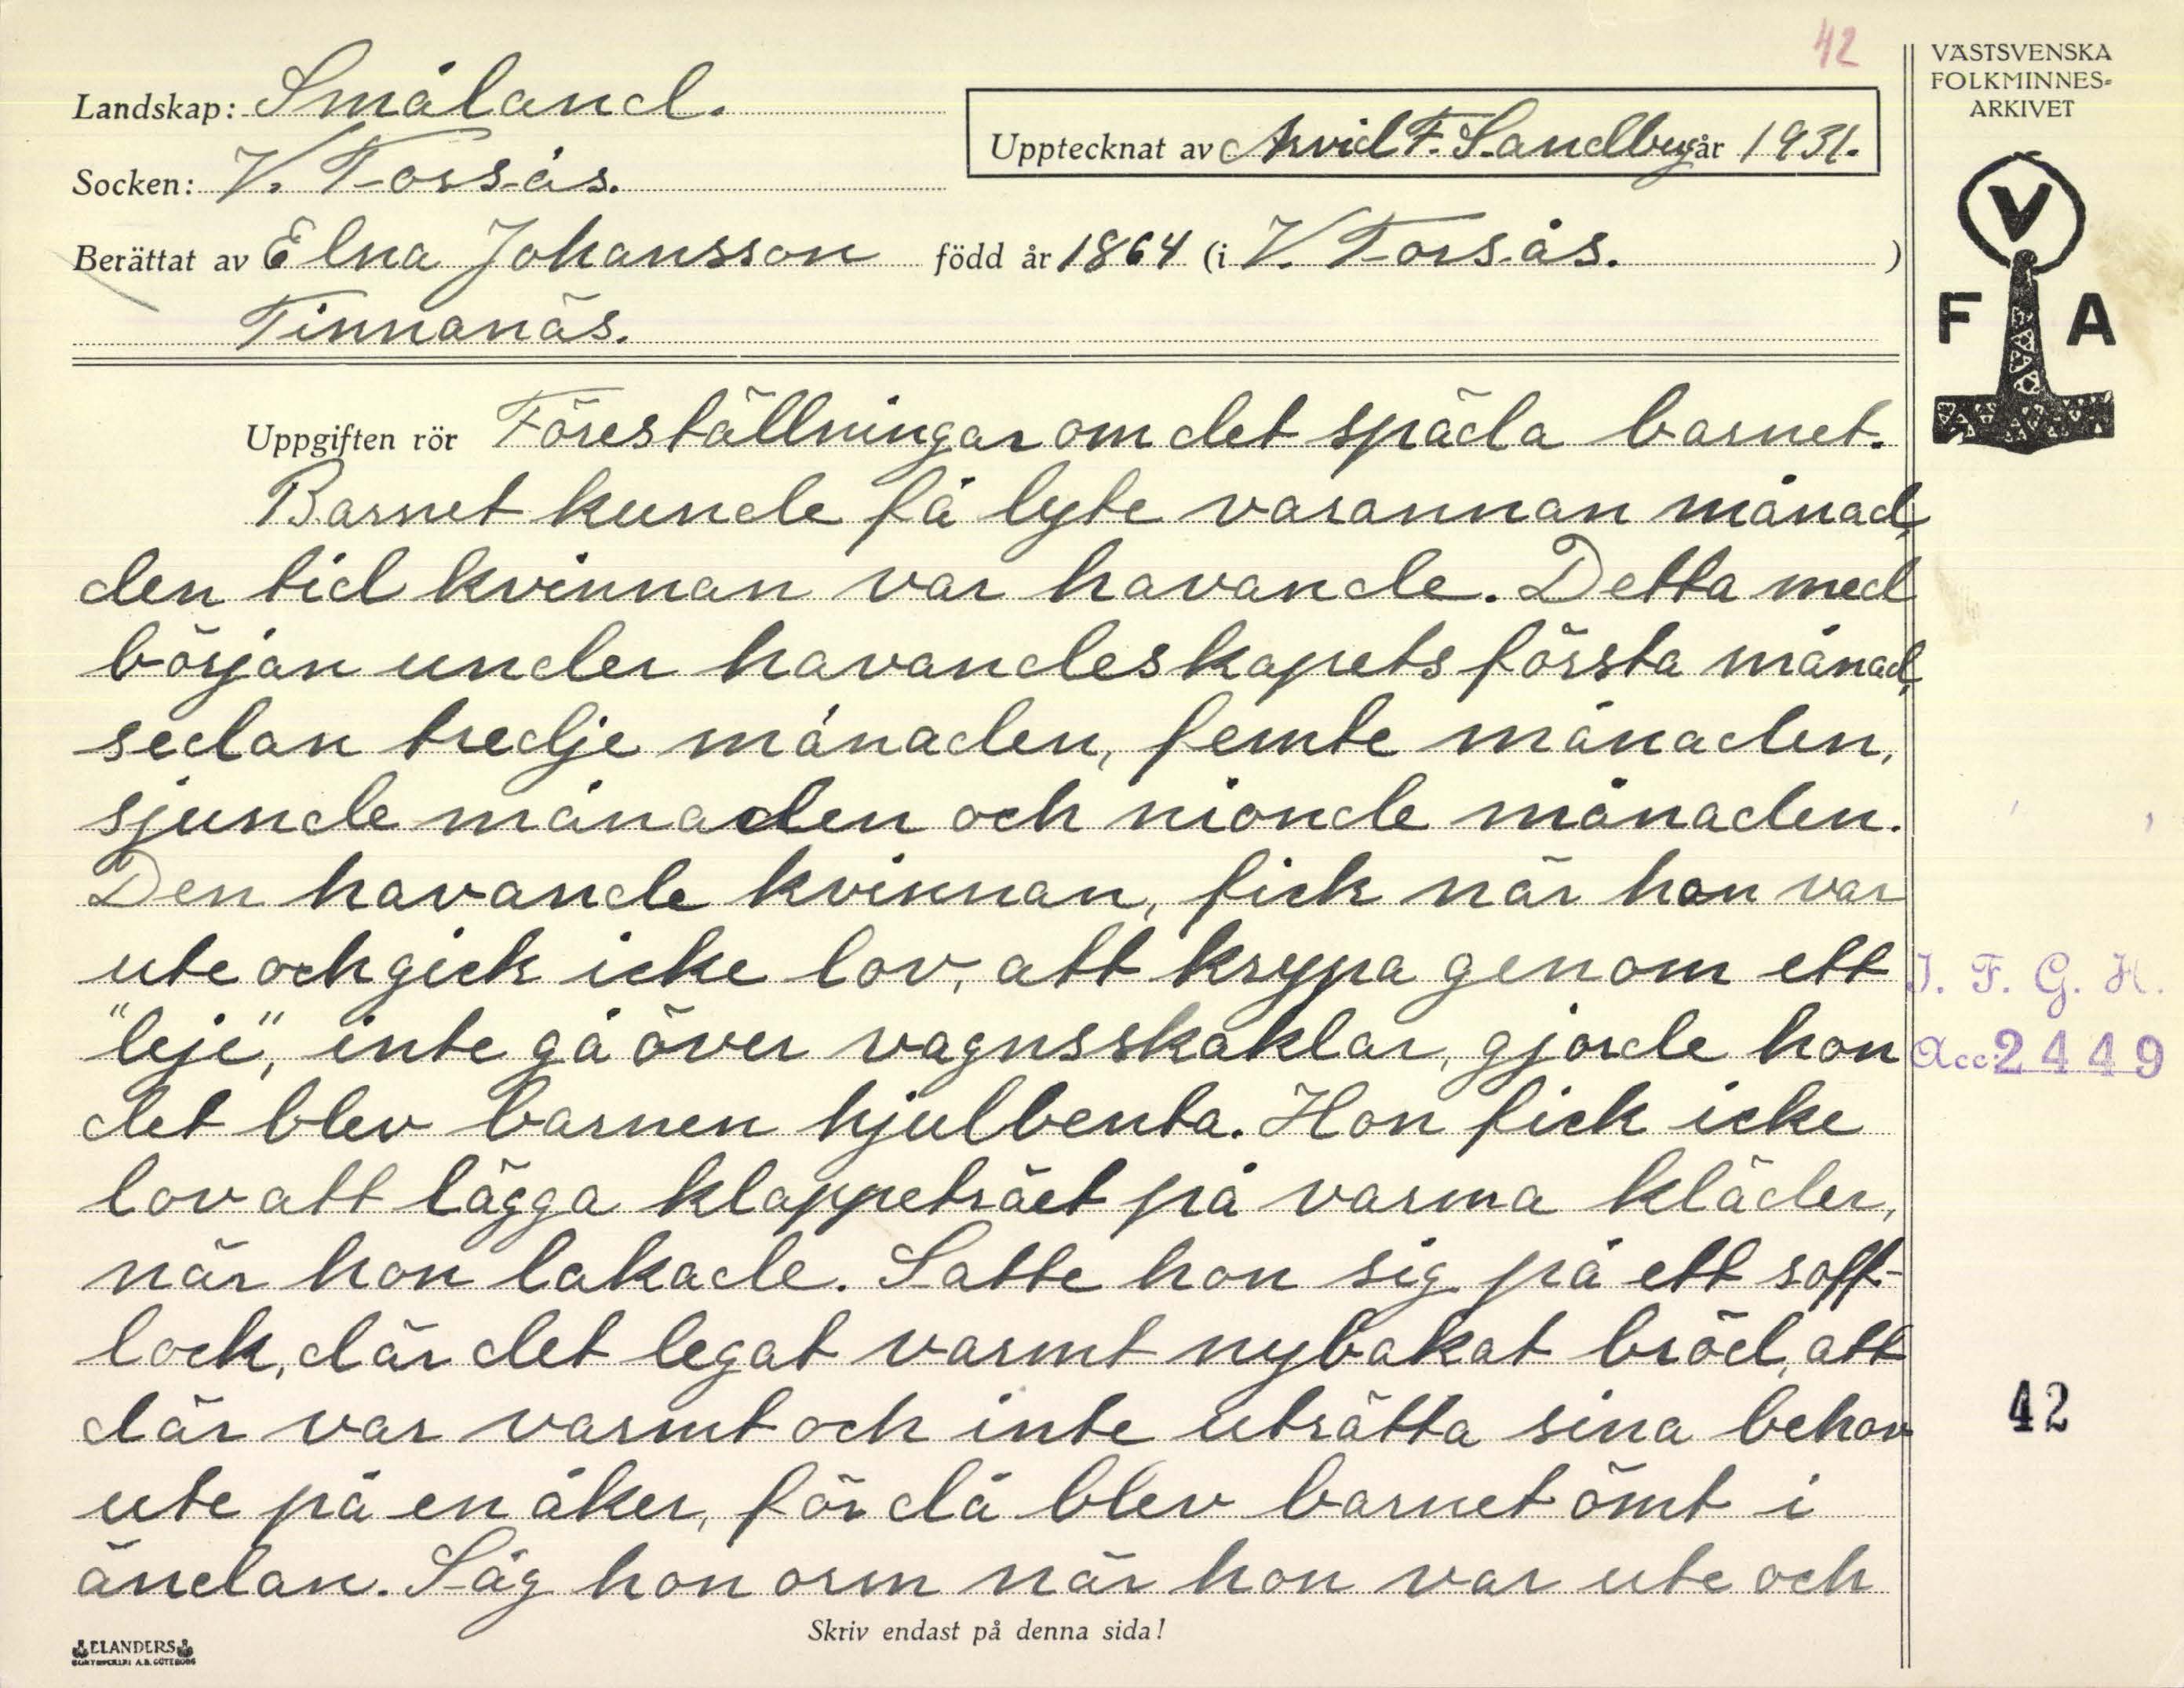 42
VÄSTSVENSKA
FOLKMINNES-
ARKIVET
Landskap: Småland.
Upptecknat av Arvid F. Sandberg år 1931.
Socken: V. Torsås.
Berättat av Elna Johansson född år 1864 (i V. Torsås. )
Tinnanäs.
V
F A
Uppgiften rör Föreställningar om det späda barnet.
Barnet kunde få lyte varannan månad,
den tid kvinnan var havande. Detta med
början under havandeskapets första månad,
sedan tredje månaden, femte månaden,
sjunde månaden och nionde månaden.
Den havande kvinnan, fick när hon var
ute och gick icke lov, att krypa genom ett
"leje", inte gå över vagnsskaklar, gjorde hon
det blev barnen hjulbenta. Hon fick icke
lov att lägga klappeträet på varma kläder,
när hon lakade. Satte hon sig på ett soff-
lock, där det legat varmt nybakat bröd, att
där var varmt och inte uträtta sina behov
ute på en åker, för då blev barnet ömt i
ändan. Såg hon orm när hon var ute och
I. F. G. H.
Acc: 2449
42
Skriv endast på denna sida!
ELANDERS
A.B. GÖTEBORG